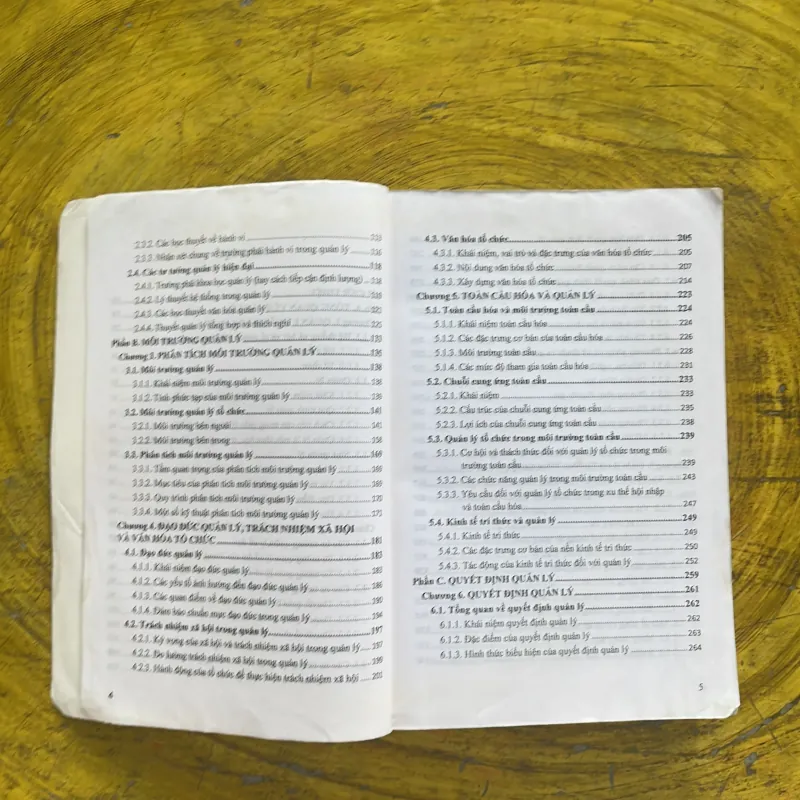 2.3.2. Các học thuyết về hành vi
2.3.3. Nhận xét chung về trường phái hành vi trong quản lý
2.4. Các tư tưởng quản lý hiện đại
2.4.1. Trường phái khoa học quản lý (hay cách tiếp cận định lượng)
2.4.2. Lý thuyết hệ thống trong quản lý
2.4.3. Các học thuyết văn hóa quản lý
2.4.4. Thuyết quản lý tổng hợp và thích nghi
Phần B. MÔI TRƯỜNG QUẢN LÝ
Chương 3. PHÂN TÍCH MÔI TRƯỜNG QUẢN LÝ
3.1. Môi trường quản lý
3.1.1. Khái niệm môi trường quản lý
3.1.2. Tính phức tạp của môi trường quản lý
3.2. Môi trường quản lý tổ chức
3.2.1. Môi trường bên ngoài
3.2.2. Môi trường bên trong
3.3. Phân tích môi trường quản lý
3.3.1. Tầm quan trọng của phân tích môi trường quản lý
3.3.2. Mục tiêu của phân tích môi trường quản lý
3.3.3. Quy trình phân tích môi trường quản lý
3.3.4. Một số kỹ thuật phân tích môi trường quản lý
Chương 4. ĐẠO ĐỨC QUẢN LÝ, TRÁCH NHIỆM XÃ HỘI
VÀ VĂN HÓA TỔ CHỨC 181
4.1. Đạo đức quản lý 183
4.1.1. Khái niệm đạo đức quản lý
4.1.2. Các yếu tố ảnh hưởng đến đạo đức quản lý
4.1.3. Các quan điểm về đạo đức quản lý 190
4.1.4. Đảm bảo chuẩn mực đạo đức trong quản lý 194
4.2. Trách nhiệm xã hội trong quản lý 197
4.2.1. Kỳ vọng của xã hội và trách nhiệm xã hội trong quản lý 197
4.2.2. Đo lường trách nhiệm xã hội trong quản lý 199
4.2.3. Hành động của tổ chức để thực hiện trách nhiệm xã hội
6
4.3. Văn hóa tổ chức 205
4.3.1. Khái niệm, vai trò và đặc trưng của văn hóa tổ chức 205
4.3.2. Nội dung văn hóa tổ chức 207
4.3.3. Xây dựng văn hóa tổ chức 214
Chương 5. TOÀN CẦU HÓA VÀ QUẢN LÝ 223
5.1. Toàn cầu hóa và môi trường toàn cầu 224
5.1.1. Khái niệm toàn cầu hóa 224
5.1.2. Các đặc trưng cơ bản của toàn cầu hóa 226
5.1.3. Môi trường toàn cầu 228
5.1.4. Các mức độ tham gia toàn cầu hóa 231
5.2. Chuỗi cung ứng toàn cầu 233
5.2.1. Khái niệm 233
5.2.2. Cấu trúc của chuỗi cung ứng toàn cầu 235
5.2.3. Lợi ích của chuỗi cung ứng toàn cầu 238
5.3. Quản lý tổ chức trong môi trường toàn cầu 239
5.3.1. Cơ hội và thách thức đối với quản lý tổ chức trong môi
trường toàn cầu 239
5.3.2. Các chức năng quản lý trong môi trường toàn cầu 243
5.3.3. Yêu cầu đối với quản lý tổ chức trong xu thế hội nhập
và toàn cầu hóa 247
5.4. Kinh tế tri thức và quản lý 249
5.4.1. Kinh tế tri thức 249
5.4.2. Các đặc trưng cơ bản của nền kinh tế tri thức 250
5.4.3. Tác động của kinh tế tri thức đối với quản lý 252
Phần C. QUYẾT ĐỊNH QUẢN LÝ 259
Chương 6. QUYẾT ĐỊNH QUẢN LÝ 261
6.1. Tổng quan về quyết định quản lý 262
6.1.1. Khái niệm quyết định quản lý 262
6.1.2. Đặc điểm của quyết định quản lý 263
6.1.3. Hình thức biểu hiện của quyết định quản lý 264
5